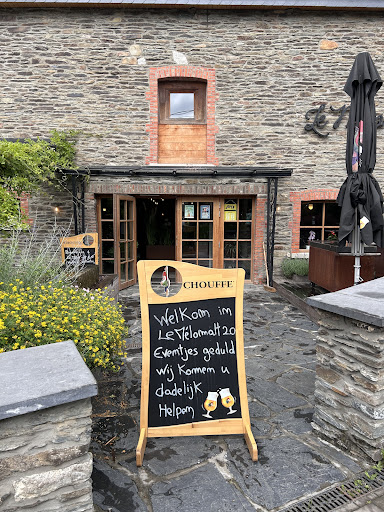 CHOUFFE
CHOUFFE
WelKom im
Le Vélomalt 2.0
Eventjes geduld
wij Komen u
dadelijk
Helpen